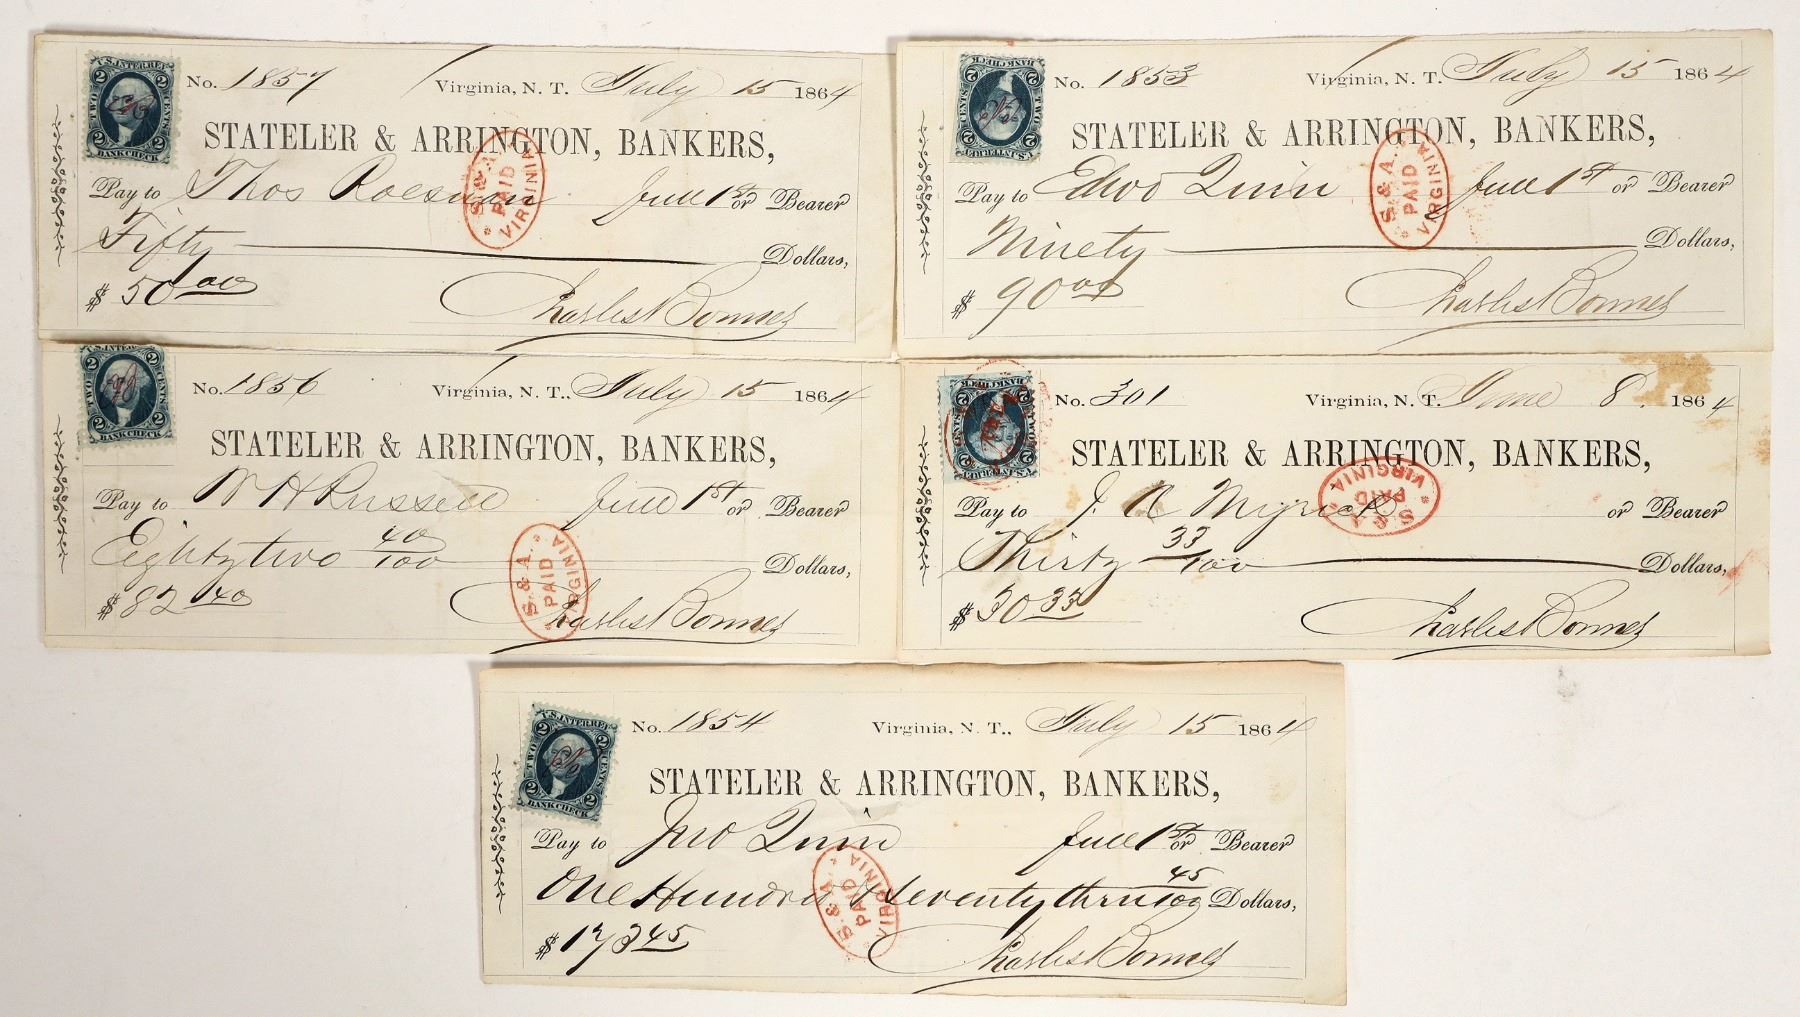 U.S. INTER. REV.
2 2
TWO CENTS
2 2
BANK CHECK
No. 1857 Virginia, N. T. July 15 1864
STATELER & ARRINGTON, BANKERS,
Pay to Thos Roesman Jull 1st or Bearer
Fifty Dollars,
$ 50 00
Charles S Bonner
S. & A. PAID VIRGINIA
BANK CHECK
2 2
TWO CENTS
2 2
U.S. INTER. REV.
No. 1853 Virginia, N. T. July 15 1864
STATELER & ARRINGTON, BANKERS,
Pay to Edwd Quin Jull 1st or Bearer
Ninety Dollars,
$ 90 00
Charles S Bonner
S. & A. PAID VIRGINIA
U.S. INTER. REV.
2 2
TWO CENTS
2 2
BANK CHECK
No. 1856 Virginia, N. T., July 15 1864
STATELER & ARRINGTON, BANKERS,
Pay to W H Russell Jull 1st or Bearer
Eighty two 40/100 Dollars,
$ 82 40
Charles S Bonner
S. & A. PAID VIRGINIA
BANK CHECK
2 2
TWO CENTS
2 2
U.S. INTER. REV.
No. 301 Virginia, N. T. June 8. 1864
STATELER & ARRINGTON, BANKERS,
Pay to J. A Myrick or Bearer
Thirty 33/100 Dollars,
$ 30 33
Charles S Bonner
S. & A. PAID VIRGINIA
U.S. INTER. REV.
2 2
TWO CENTS
2 2
BANK CHECK
No. 1854 Virginia, N. T., July 15 1864
STATELER & ARRINGTON, BANKERS,
Pay to Jno Quin Jull 1st or Bearer
One Hundred & Seventy thre 45/100 Dollars,
$ 173 45
Charles S Bonner
S. & A. PAID VIRGINIA